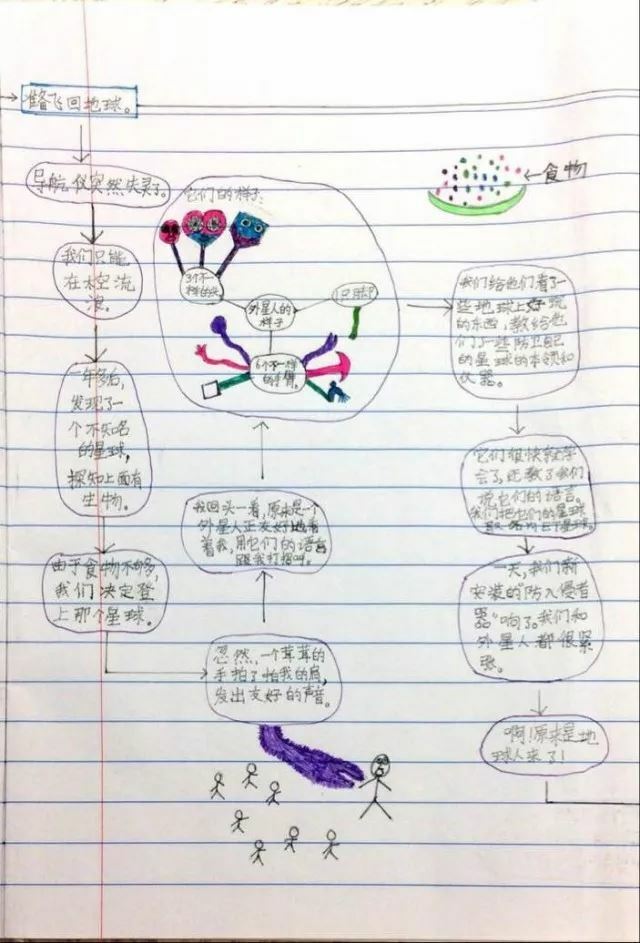 准备飞回地球。
导航仪突然失灵了。
我们只能
在太空流
浪。
一年多后,
发现了一
个不知名
的星球,
探知上面有
生物。
由于食物不够,
我们决定登
上那个星球。
忽然,一个茸茸的
手拍了拍我的肩,
发出友好的声音。
我回头一看,原来是一个
外星人正友好地看
着我,用它们的语言
跟我打招呼。
它们的样子:
3个不一
样的头
外星人的
样子
1只脚
6个不一样
的手臂。
食物
我们给他们看了一
些地球上好玩
的东西,教给他
们了一些防卫自己
的星球的本领和
武器。
它们很快就学
会了,还教了我们
说它们的语言。
我们把它们的星球
星球。
一天,我们新
安装的"防入侵者
器"响了。我们和
外星人都很紧
张。
啊!原来是地
球人来了!